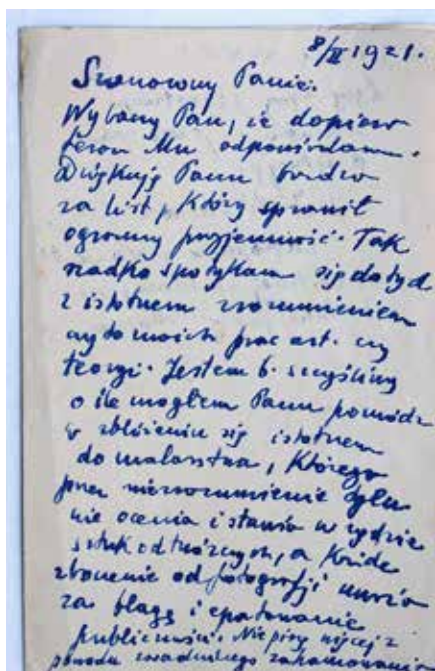 8/II 1921.
Szanowny Panie.
Wybaczy Pan, że dopiero
teraz Mu odpowiadam.
Dziękuję Panu bardzo
za list, który sprawił
ogromną przyjemność. Tak
rzadko spotykam się dotyd
z istotnem zrozumieniem
czy to moich prac art. czy
teorji. Jestem b. szczęśliwy
o ile mogłem Panu pomódz
w zbliżeniu się istotnem
do malarstwa, którego
przez niezrozumienie tylu
nie ocenia i stawia w rzędzie
sztuk odtwórczych, a każde
zboczenie od fotografji uważa
za blagę i epatowanie
publiczności. Nie piszę więcej z
powodu zasadniczego zahamowania